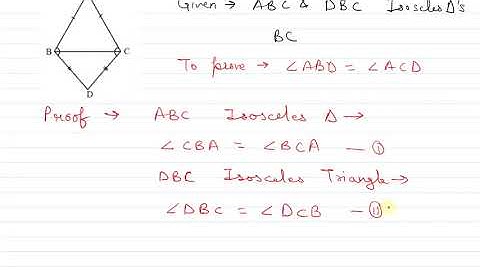 Given → ABC & DBC Isosceles Δ's
BC
To prove → ∠ABD = ∠ACD
B
C
D
Proof → ABC Isosceles Δ →
∠CBA = ∠BCA — ①
DBC Isosceles Triangle →
∠DBC = ∠DCB — ⑪